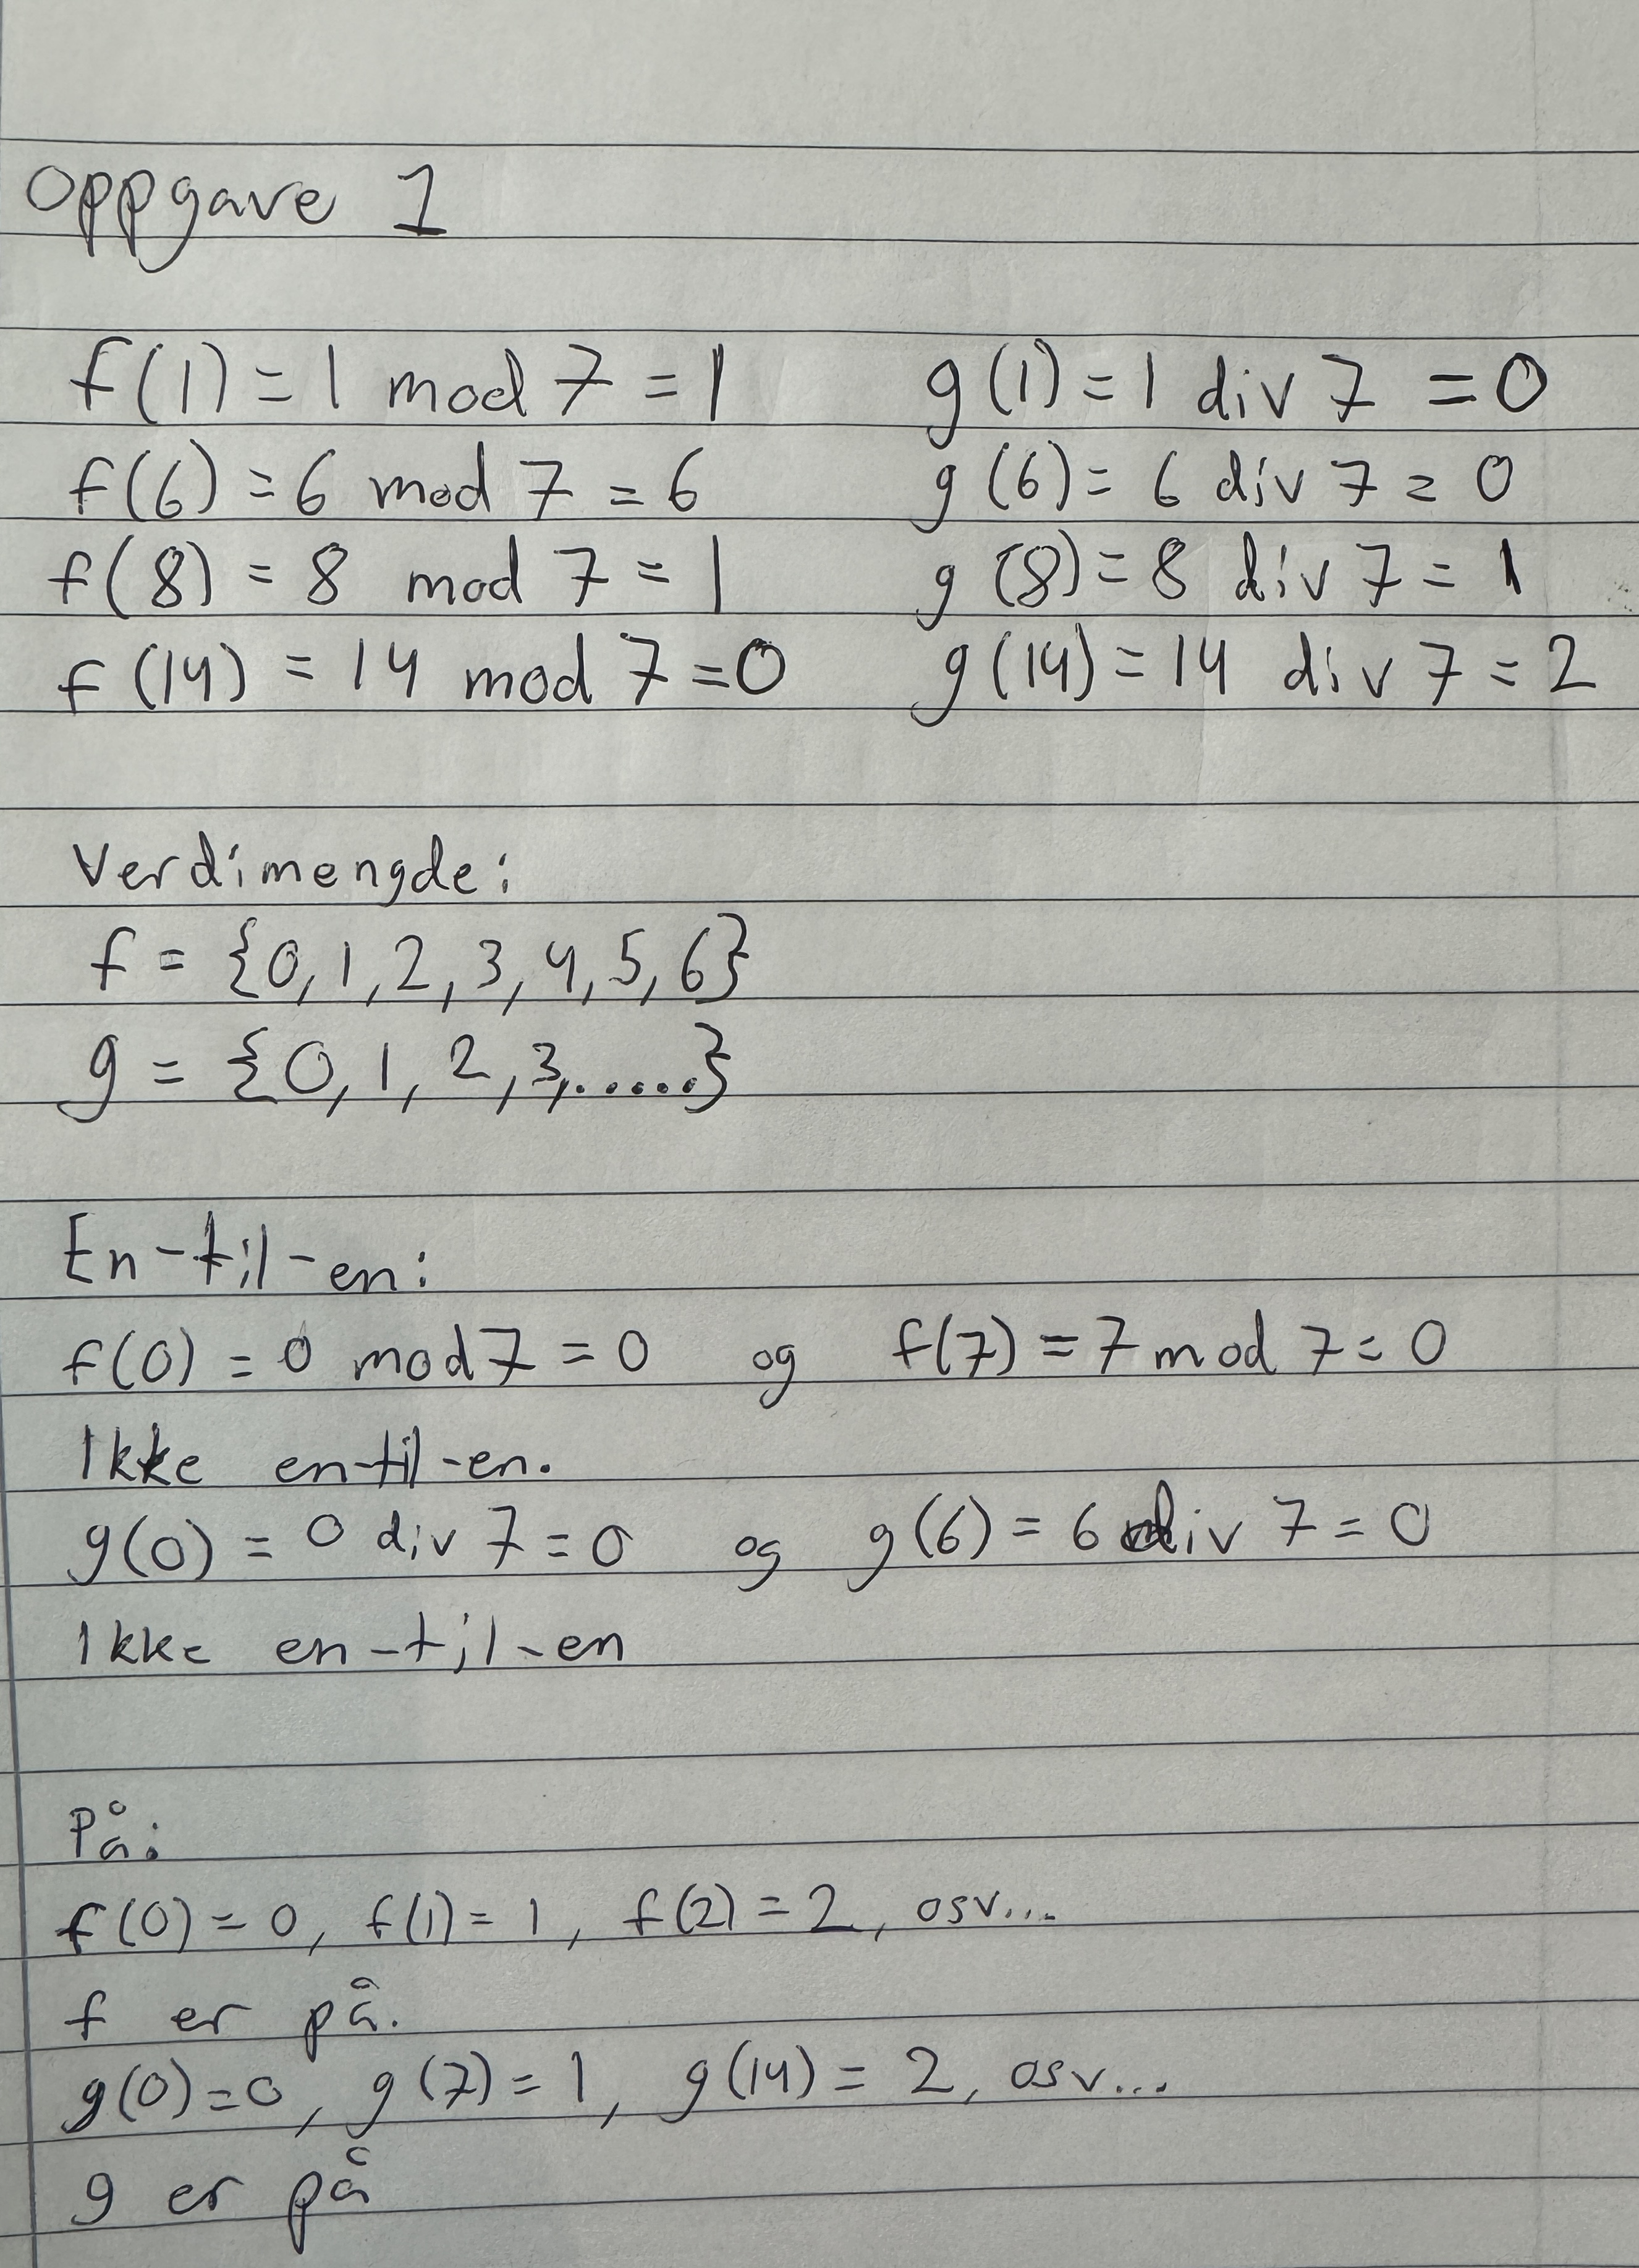 Oppgave 1
f(1) = 1 mod 7 = 1 g(1) = 1 div 7 = 0
f(6) = 6 mod 7 = 6 g(6) = 6 div 7 = 0
f(8) = 8 mod 7 = 1 g(8) = 8 div 7 = 1
f(14) = 14 mod 7 = 0 g(14) = 14 div 7 = 2
Verdimengde:
f = {0, 1, 2, 3, 4, 5, 6}
g = {0, 1, 2, 3, ......}
En-til-en:
f(0) = 0 mod 7 = 0 og f(7) = 7 mod 7 = 0
Ikke en-til-en.
g(0) = 0 div 7 = 0 og g(6) = 6 div 7 = 0
Ikke en-til-en
På:
f(0) = 0, f(1) = 1, f(2) = 2, osv...
f er på.
g(0) = 0, g(7) = 1, g(14) = 2, osv...
g er på